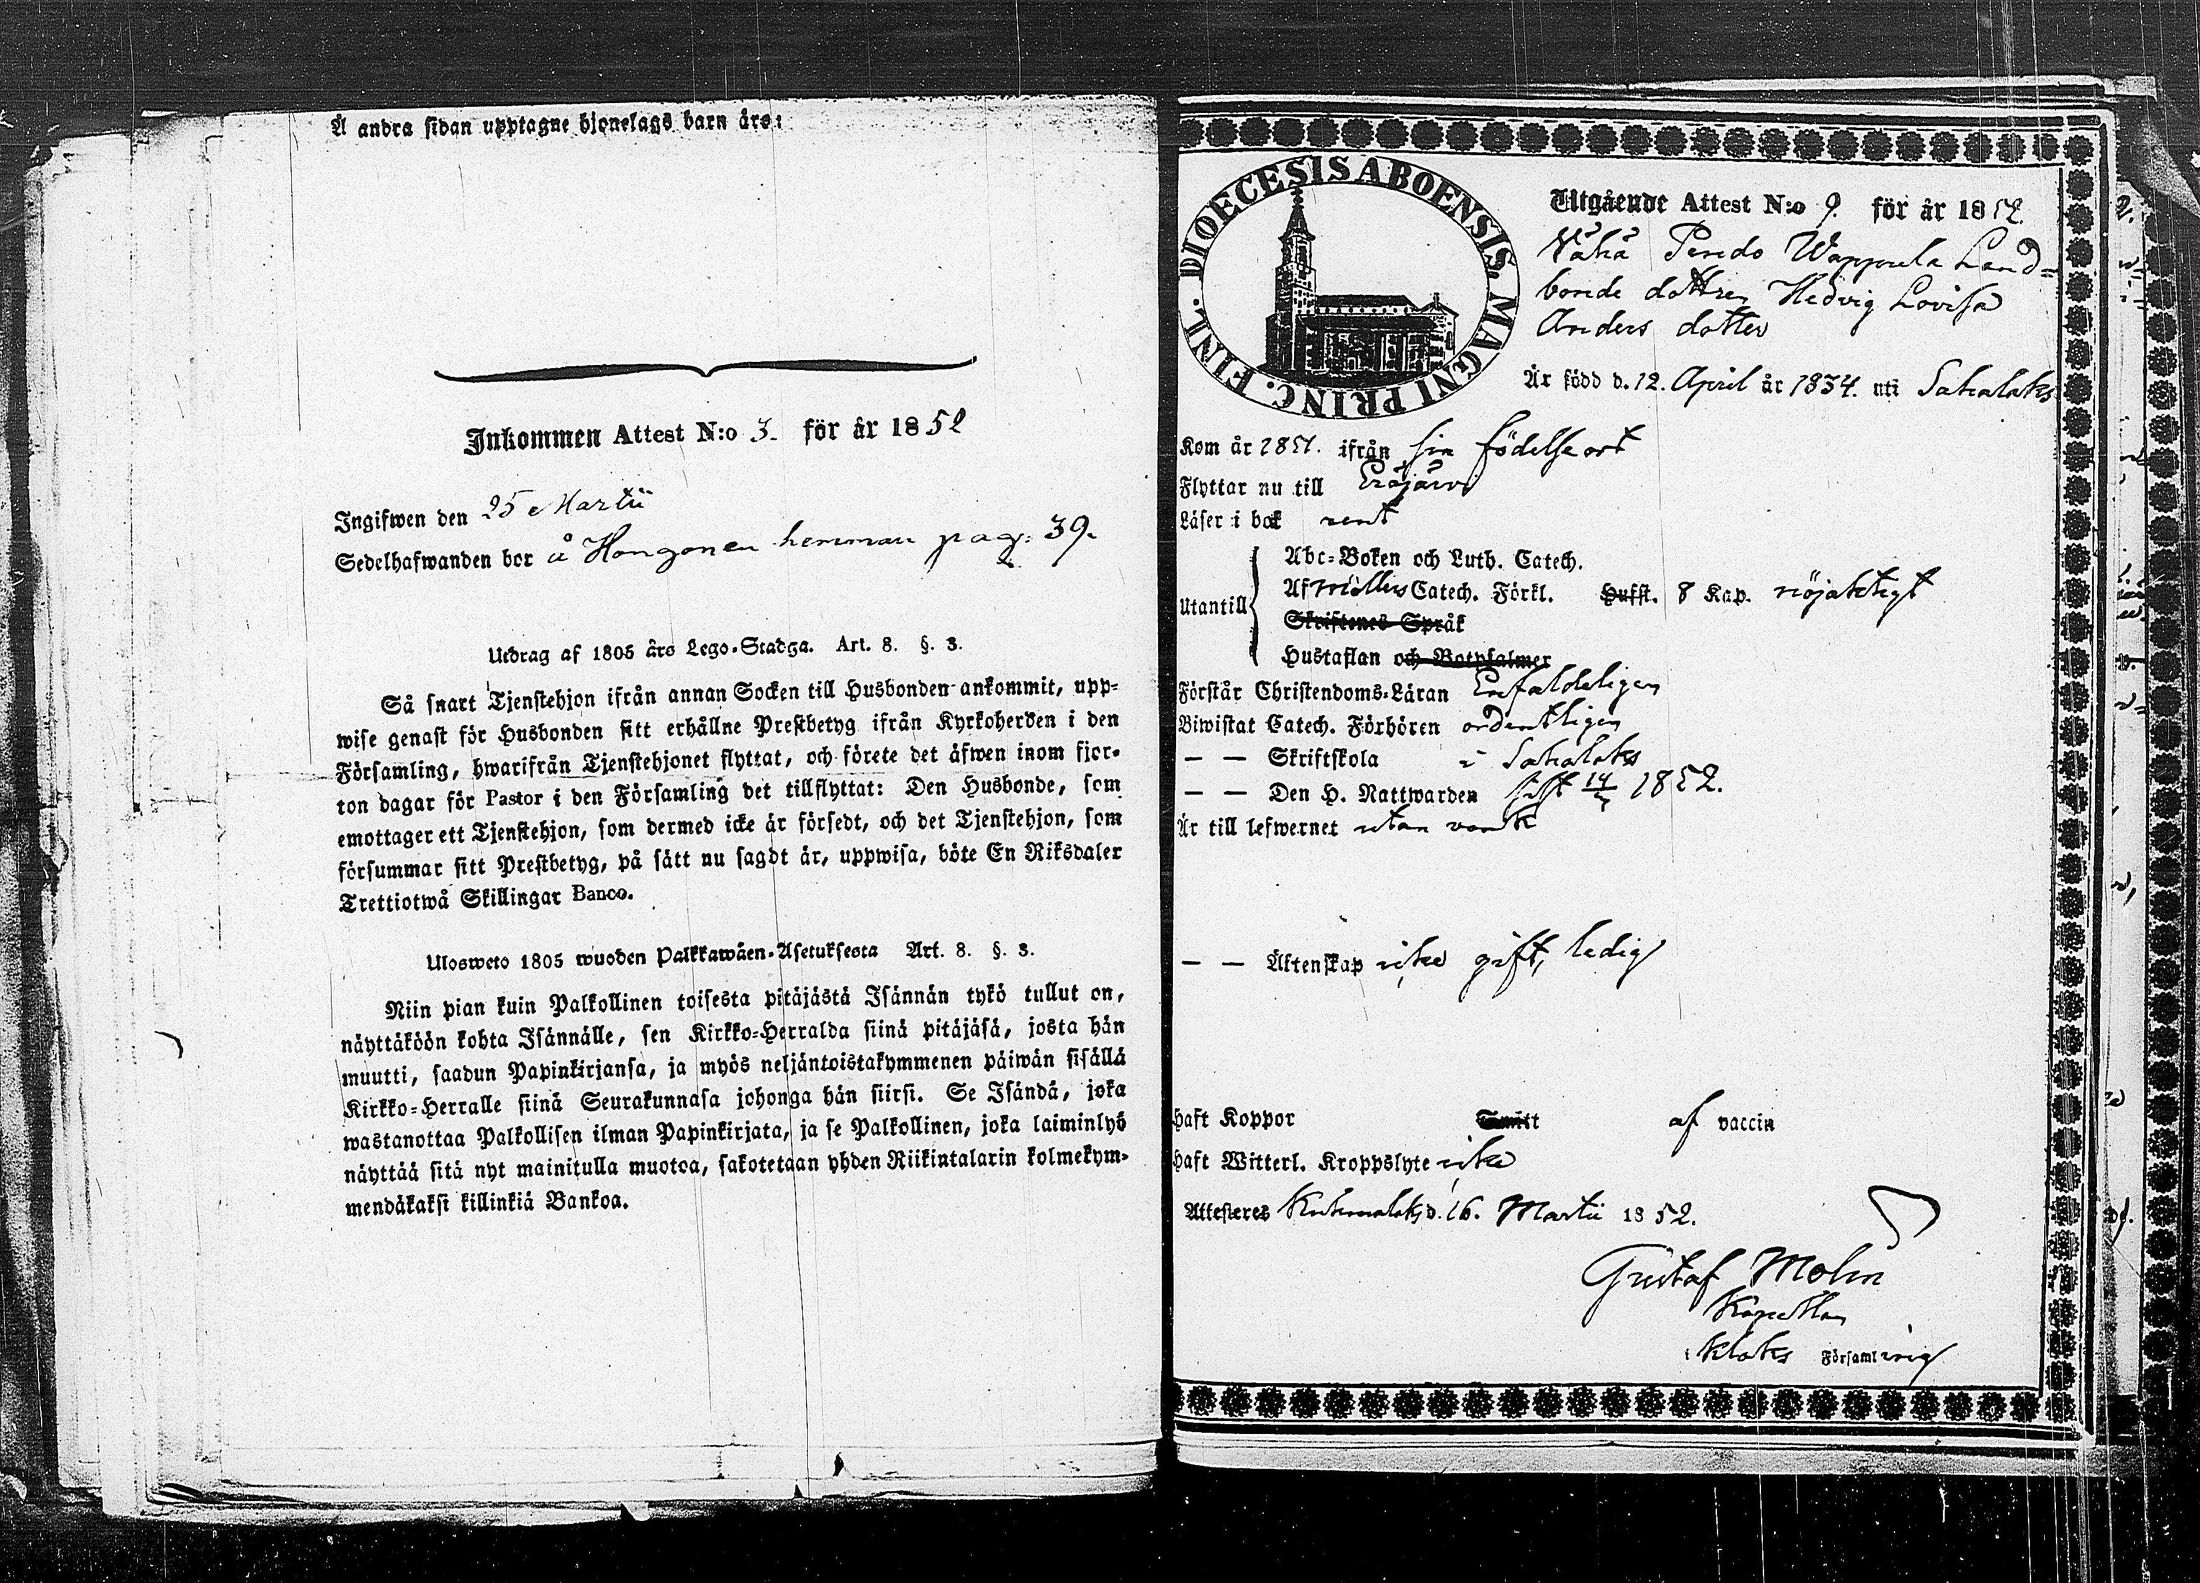 Å andra sidan upptagne hjonelags barn äro:
Inkommen Attest N:o 3. för år 1852
Ingifwen den 25 Martii
Sedelhafwanden bor å Hongonen hemman pag: 39.
Utdrag af 1805 års Lego-Stadga. Art. 8. §. 3.
Så snart Tjenstehjon ifrån annan Socken till Husbonden ankommit, upp-
wise genast för Husbonden sitt erhållne Prestbetyg ifrån Kyrkoherden i den
Församling, hwarifrån Tjenstehjonet flyttat, och förete det äfwen inom fjor-
ton dagar för Pastor i den Församling det tillflyttat: Den Husbonde, som
emottager ett Tjenstehjon, som dermed icke är försedt, och det Tjenstehjon, som
försummar sitt Prestbetyg, på sätt nu sagdt är, uppwisa, böte En Riksdaler
Trettiotwå Skillingar Banco.
Ulosweto 1805 wuoden Palkkawäen-Asetuksesta Art. 8. §. 3.
Niin pian kuin Palkollinen toisesta pitäjästä Isännän tykö tullut on,
näyttäköön kohta Isännälle, sen Kirkko-Herralda siinä pitäjäsä, josta hän
muutti, saadun Papinkirjansa, ja myös neljäntoistakymmenen päiwän sisällä
Kirkko-Herralle siinä Seurakunnasa johonga hän siirsi. Se Isändä, joka
wastanottaa Palkollisen ilman Papinkirjata, ja se Palkollinen, joka laiminlyö
näyttää sitä nyt mainitulla muotoa, sakotetaan yhden Riikintalarin kolmekym-
mendäkaksi killinkiä Bankoa.
DIOECESIS ABOENSIS. MAGNI PRINC. FINL.
Utgående Attest N:o 9. för år 1852.
Vähä Pendo Wappula Land-
bonde dottren Hedvig Lovisa
Anders dotter
Är född d. 12. April år 1834. uti Sahalaks
Kom år 1851. ifrån sin födelse ort
Flyttar nu till Eräjärvi
Läser i bok rent
Utantill
Abc-Boken och Luth. Catech.
Af Möllers Catech. Förkl. Husst. 8 Kap. nöjaktigt
Skriftenes Språk
Hustaflan och Botpsalmer
Förstår Christendoms-Läran Enfaldeligen
Biwistat Catech. Förhören ordentligen
— — Skriftskola i Sahalaks
— — Den H. Nattwarden sist 1852.
Är till lefwernet utan vank
— — Äktenskap icke gift, ledig
Haft Koppor Smitt af vaccin
Haft Witterl. Kroppslyte icke
Attesteres Kuhmalaks d. 16. Martii 1852.
Gustaf Molin
Kapellan
i Klaks Församling